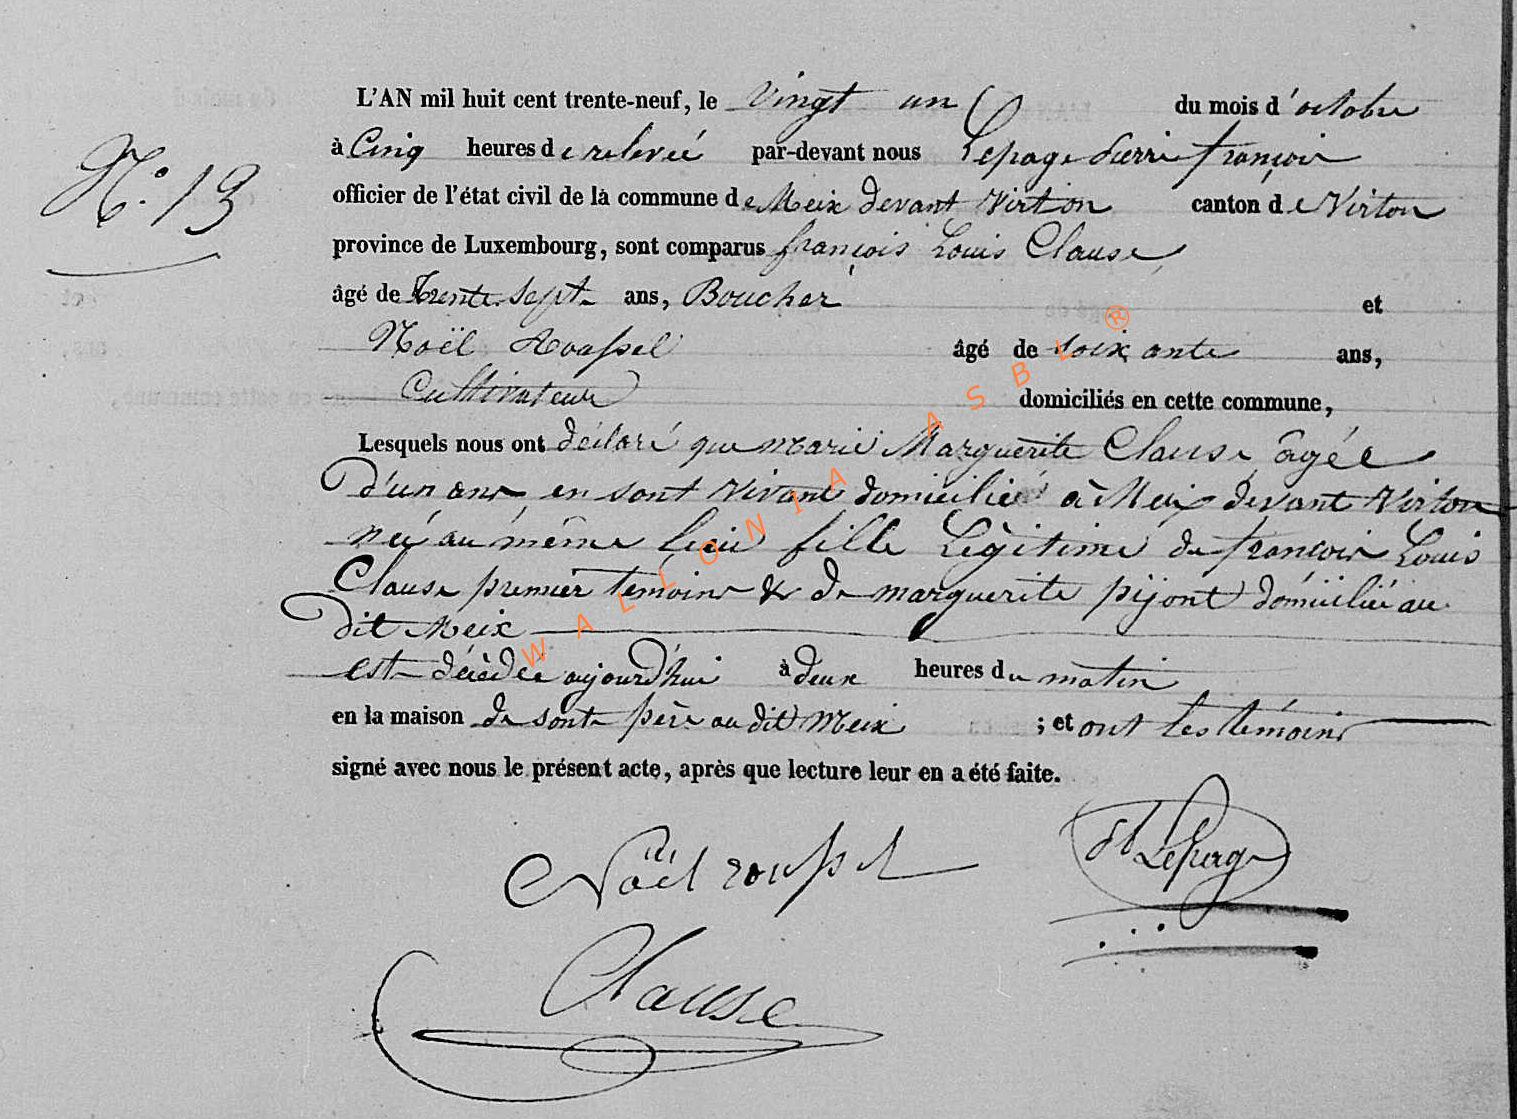 L'AN mil huit cent trente-neuf, le vingt un du mois d'octobre
N°. 13
à Cinq heures de relevée par-devant nous Lepage Pierre françois
officier de l'état civil de la commune de Meix devant Virton canton de Virton
province de Luxembourg, sont comparus françois Louis Clause
âgé de Trente Sept ans, Boucher et
Noël Roussel âgé de soixante ans,
Cultivateur domiciliés en cette commune,
Lesquels nous ont déclaré que marie Marguerite Clause âgée
D'un ans en sont vivant domiciliée à Meix devant Virton
née au même lieu fille Légitime de françois Louis
Clause premier temoins & de marguerite pijont domiciliée au
dit Meix
est décédée aujourd'hui à deux heures du matin
en la maison de sont père au dit Meix ; et ont les témoins
signé avec nous le présent acte, après que lecture leur en a été faite.
Noël roussel
Lepage
Clause
WALLONIA ASBL ®